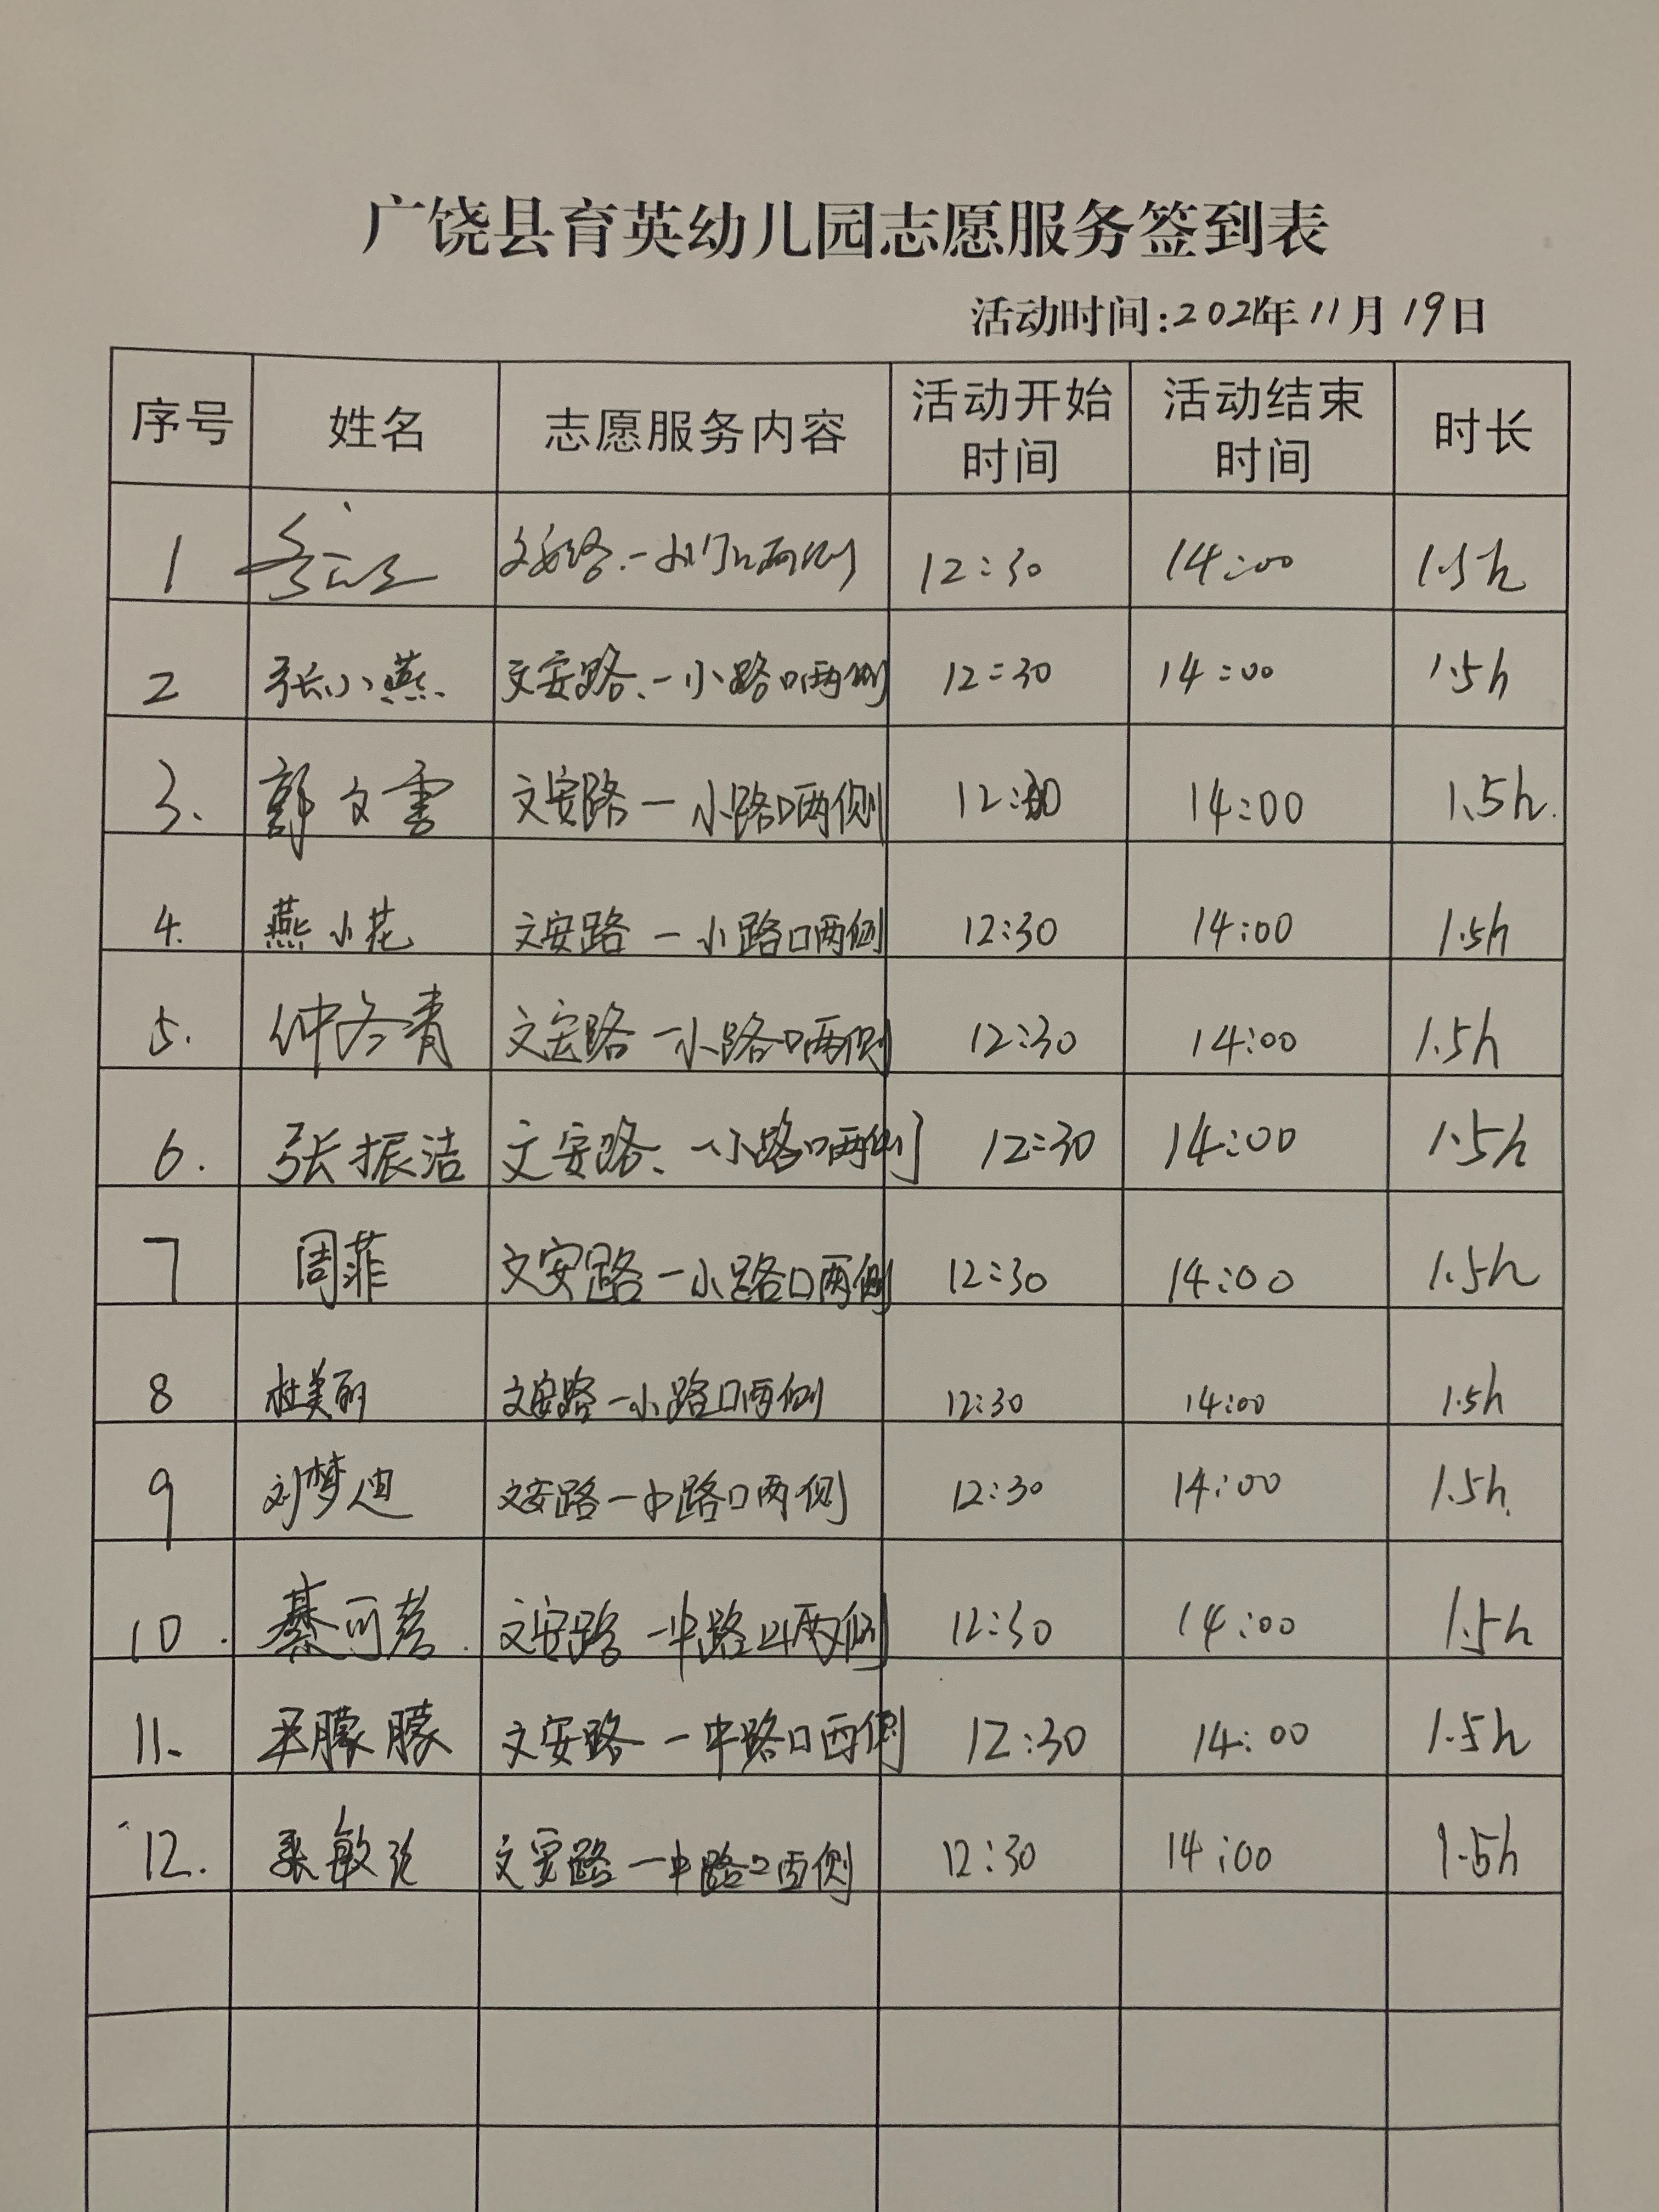 广饶县育英幼儿园志愿服务签到表
活动时间:2021年11月19日
序号 姓名 志愿服务内容 活动开始时间 活动结束时间 时长
1 文安路、一小门口两侧 12:30 14:00 1.5h
2 张小燕 文安路、一小路口两侧 12:30 14:00 1.5h
3. 郭文雪 文安路一小路口两侧 12:30 14:00 1.5h.
4. 燕小花 文安路一小路口两侧 12:30 14:00 1.5h
5. 仲冬青 文安路一小路口两侧 12:30 14:00 1.5h
6. 张振洁 文安路、一小路口两侧 12:30 14:00 1.5h
7 周菲 文安路一小路口两侧 12:30 14:00 1.5h
8 杜美丽 文安路一小路口两侧 12:30 14:00 1.5h
9 刘梦迪 文安路一中路口两侧 12:30 14:00 1.5h
10. 綦可 文安路一中路口两侧 12:30 14:00 1.5h
11. 朦朦 文安路一中路口两侧 12:30 14:00 1.5h
12. 敏 文安路一中路口两侧 12:30 14:00 1.5h